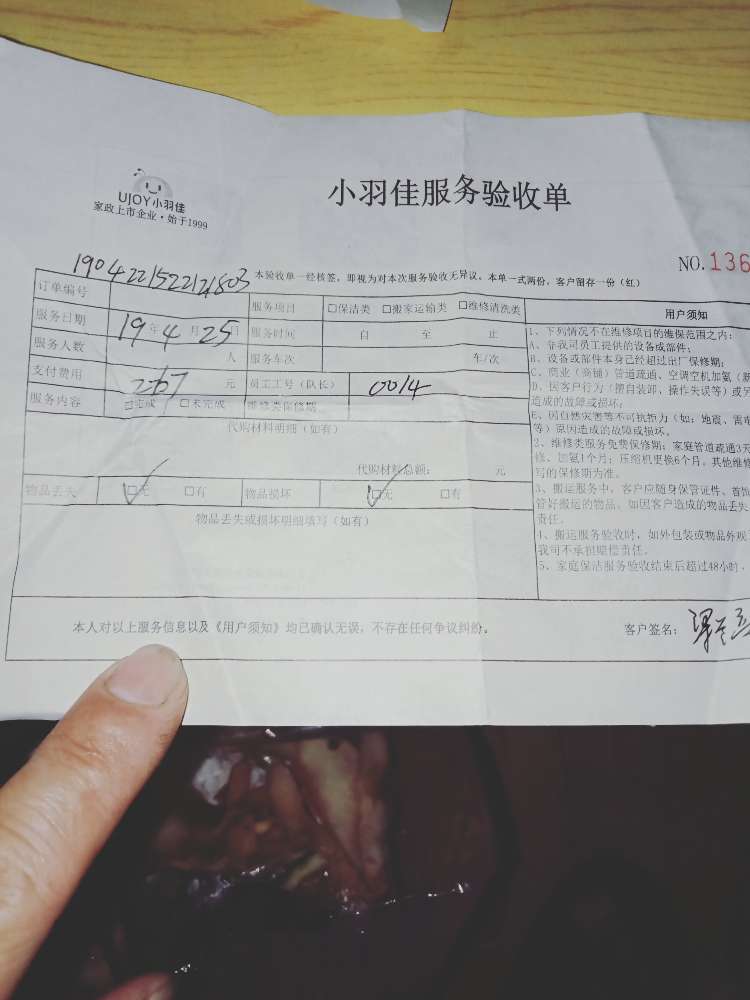 UJOY小羽佳
家政上市企业·始于1999
小羽佳服务验收单
NO.136
1904221522121803
本验收单一经核签，即视为对本次服务验收无异议。本单一式两份，客户留存一份（红）
订单编号
服务项目 □保洁类 □搬家运输类 □维修清洗类
服务日期 19年4月25日
服务时间 自 至 止
服务人数 人
服务车次 车/次
支付费用 267元
员工工号（队长） 0014
服务内容 □完成 □未完成
维修类保修期
代购材料明细（如有）
代购材料总额： 元
物品丢失 □无 □有
物品损坏 □无 □有
物品丢失或损坏明细填写（如有）
用户须知
1、下列情况不在维修项目的维保范围之内：
A、非我司员工提供的设备或部件；
B、设备或部件本身已经超过出厂保修期；
C、商业（商铺）管道疏通、空调空机加氨（新
D、因客户行为（擅自装卸、操作失误等）或另
造成的故障或损坏；
E、因自然灾害等不可抗拒力（如：地震、雷电
等）原因造成的故障或损坏。
2、维修类服务免费保修期：家庭管道疏通3天
修、加氨1个月；压缩机更换6个月。其他维修
写的保修期为准。
3、搬运服务中，客户应随身保管证件、首饰
管好搬运的物品，如因客户造成的物品丢失
责任。
4、搬运服务验收时，如外包装或物品外观
我司不承担赔偿责任。
5、家庭保洁服务验收结束后超过48小时，
本人对以上服务信息以及《用户须知》均已确认无误，不存在任何争议纠纷。
客户签名：